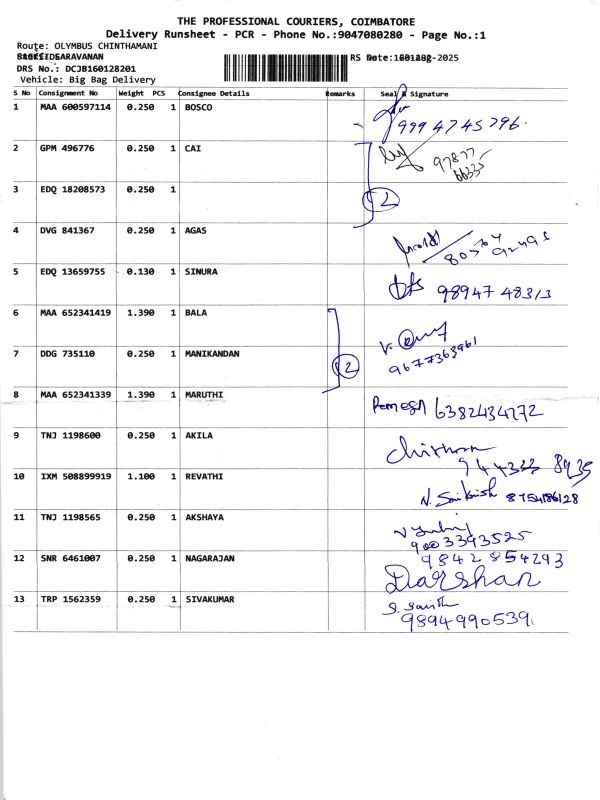 THE PROFESSIONAL COURIERS, COIMBATORE
Delivery Runsheet - PCR - Phone No.:9047080280 - Page No.:1
Route: OLYMBUS CHINTHAMANI
SARAVANAN RS Date: -2025
DRS No.: DCJB160128201
Vehicle: Big Bag Delivery
S No Consignment No Weight PCS Consignee Details Remarks Seal & Signature
1 MAA 600597114 0.250 1 BOSCO
9994745796.
2 GPM 496776 0.250 1 CAI
97877
66335
3 EDQ 18208573 0.250 1
2
4 DVG 841367 0.250 1 AGAS
5 EDQ 13659755 0.130 1 SINURA
98947 48313
6 MAA 652341419 1.390 1 BALA
7 DDG 735110 0.250 1 MANIKANDAN
2
9677363961
8 MAA 652341339 1.390 1 MARUTHI
Ramesh 6382434772
9 TNJ 1198600 0.250 1 AKILA
944333 8935
10 IXM 508899919 1.100 1 REVATHI
N. Saikrish 8754186128
11 TNJ 1198565 0.250 1 AKSHAYA
9003393525
12 SNR 6461007 0.250 1 NAGARAJAN
9842854293
Darshan
13 TRP 1562359 0.250 1 SIVAKUMAR
9894990539